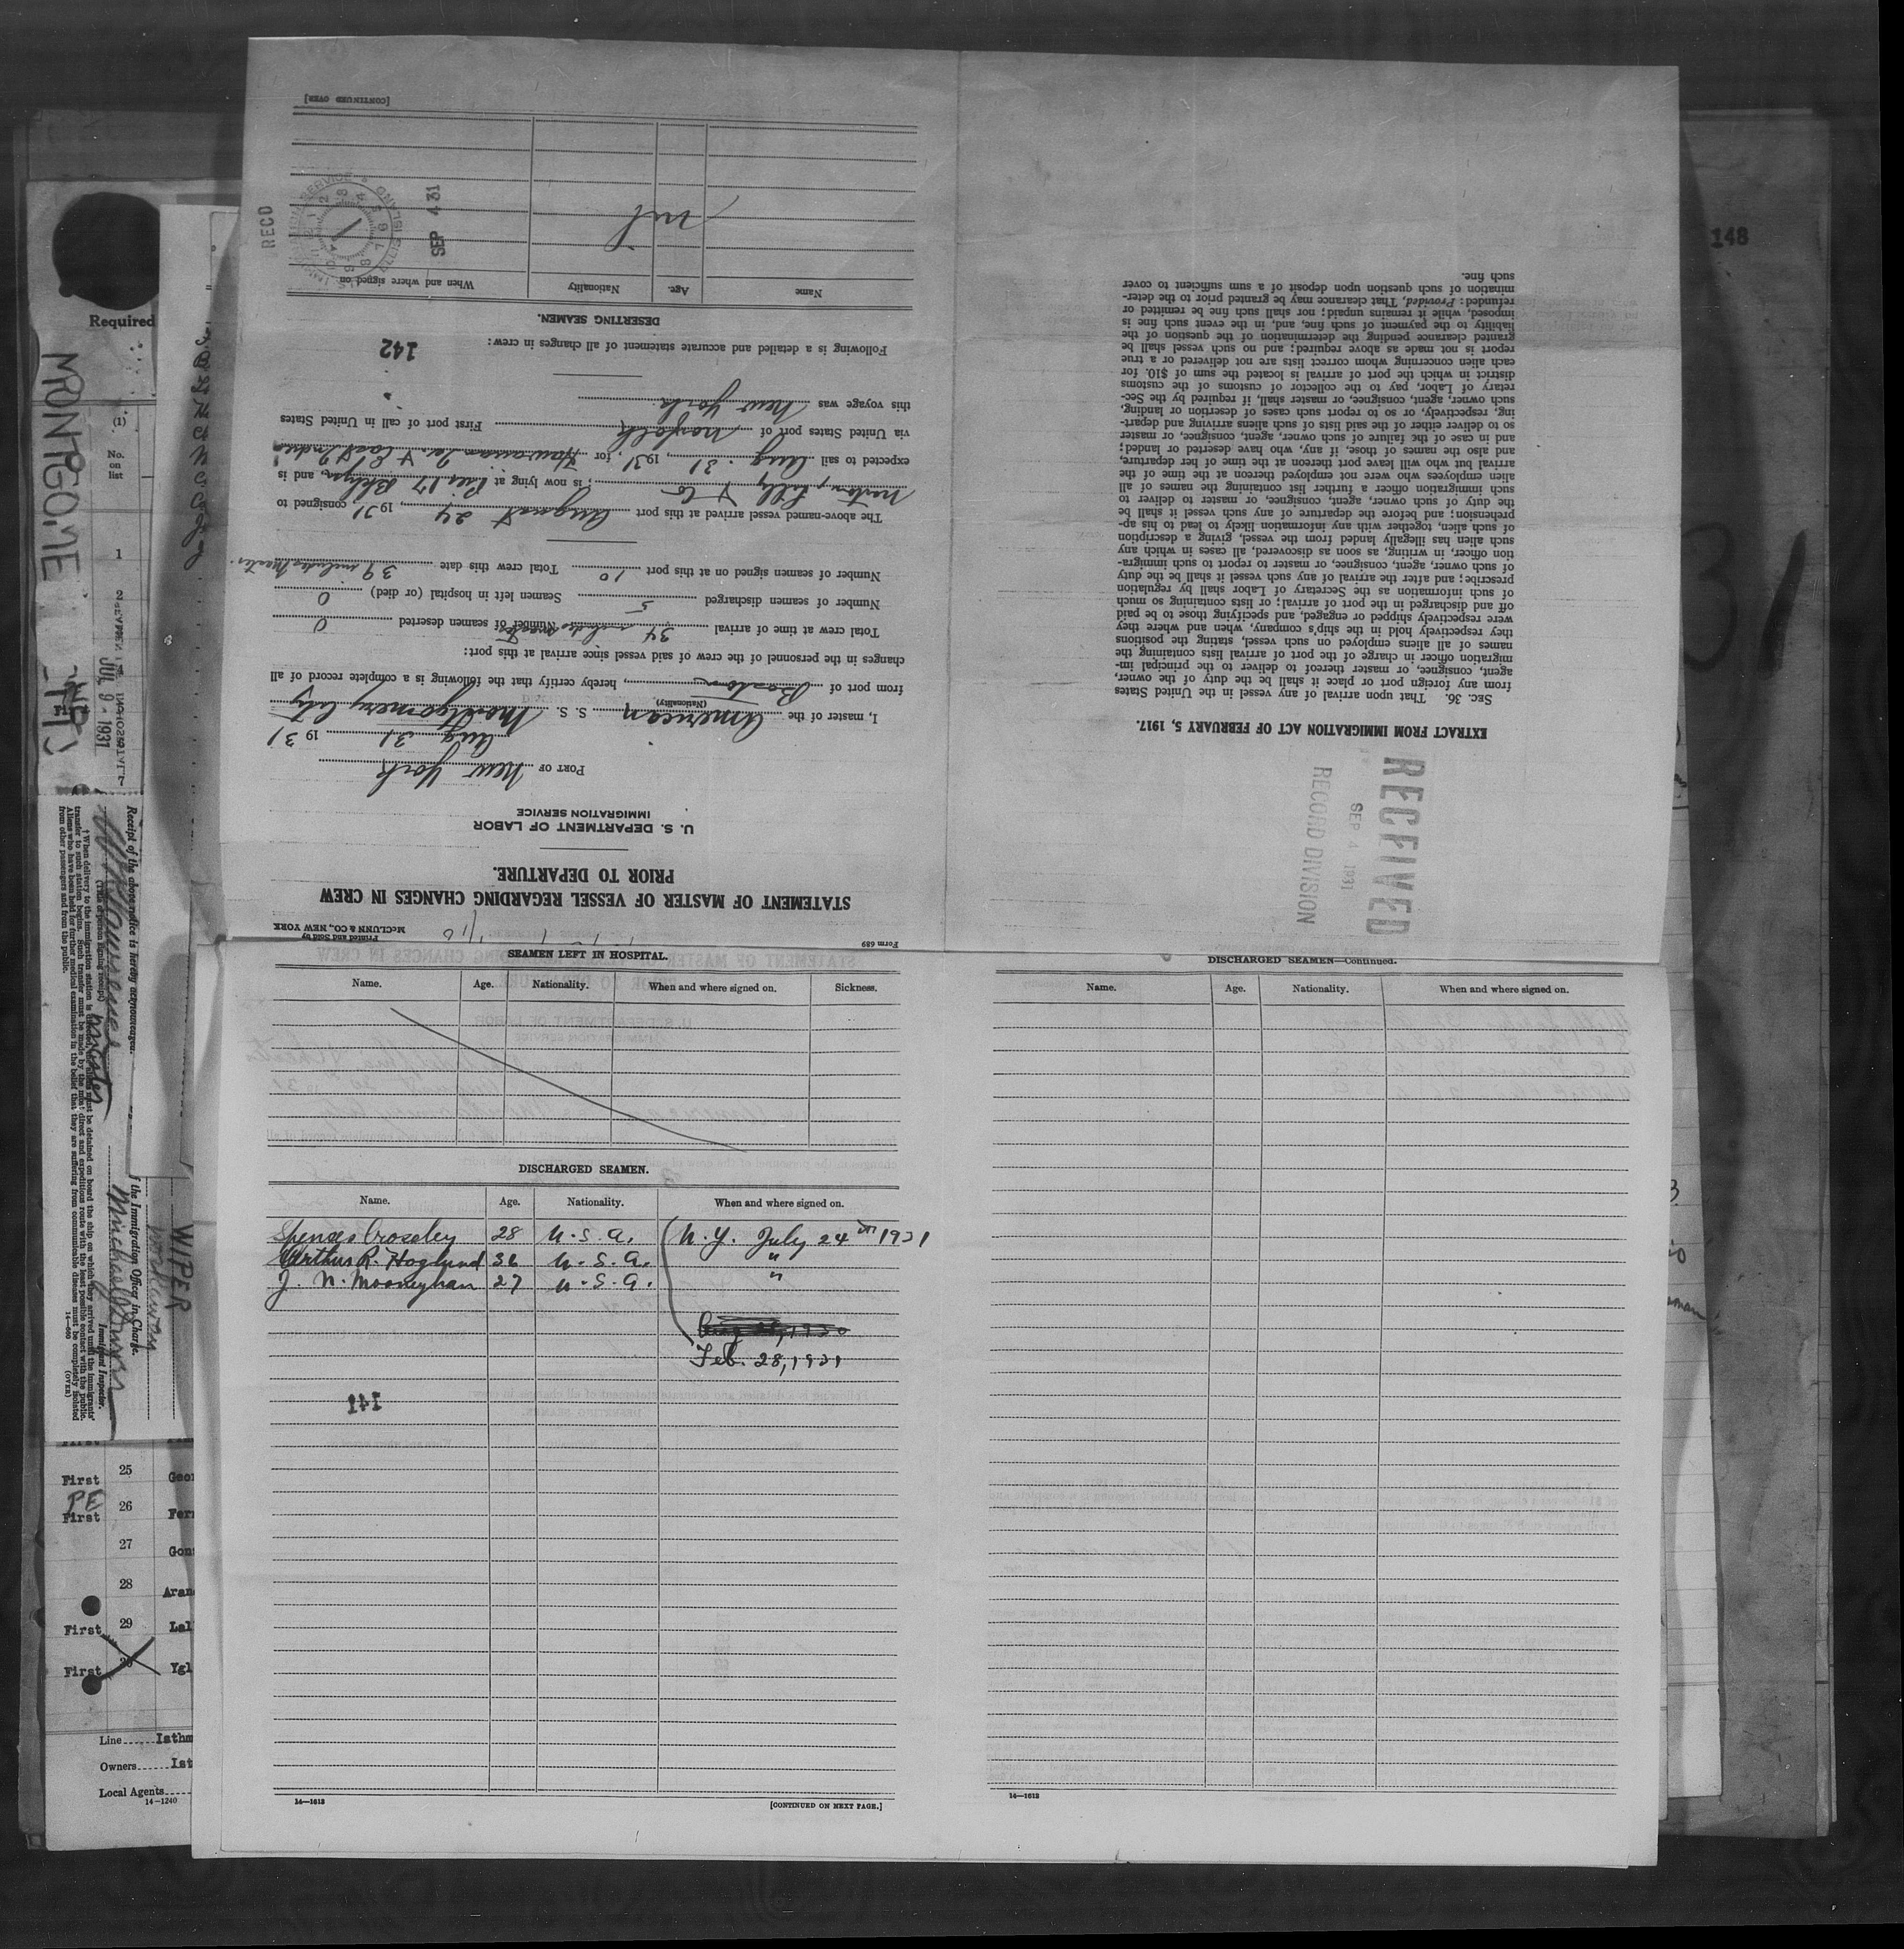 Form 689
Printed and Sold by
McCLUNN & CO., NEW YORK
STATEMENT OF MASTER OF VESSEL REGARDING CHANGES IN CREW
PRIOR TO DEPARTURE.
U. S. DEPARTMENT OF LABOR
IMMIGRATION SERVICE
PORT OF New York
Aug 31 1931
I, master of the American S. S. Montgomery City
(Nationality)
from port of Boston, hereby certify that the following is a complete record of all
changes in the personnel of the crew of said vessel since arrival at this port:
Total crew at time of arrival 34 includes master Number of seamen deserted 0
Number of seamen discharged 5 Seamen left in hospital (or died) 0
Number of seamen signed on at this port 10 Total crew this date 39 includes Master.
The above-named vessel arrived at this port August 24, 1931, consigned to
Norton, Lilly & Co; is now lying at Pier 17 Bklyn, and is
expected to sail Aug. 31, 1931, for Hawaiian Is. & East Indies
via United States port of Norfolk First port of call in United States
this voyage was New York.
Following is a detailed and accurate statement of all changes in crew:
142
DESERTING SEAMEN.
Name Age. Nationality When and where signed on
nil
RECD
SEP 4 31
ELLIS ISLAND
[CONTINUED OVER]
RECEIVED
SEP 4 1931
RECORD DIVISION
EXTRACT FROM IMMIGRATION ACT OF FEBRUARY 5, 1917.
SEC. 36. That upon arrival of any vessel in the United States
from any foreign port or place it shall be the duty of the owner,
agent, consignee, or master thereof to deliver to the principal im-
migration officer in charge of the port of arrival lists containing the
names of all aliens employed on such vessel, stating the positions
they respectively hold in the ship's company, when and where they
were respectively shipped or engaged, and specifying those to be paid
off and discharged in the port of arrival; or lists containing so much
of such information as the Secretary of Labor shall by regulation
prescribe; and after the arrival of any such vessel it shall be the duty
of such owner, agent, consignee, or master to report to such immigra-
tion officer, in writing, as soon as discovered, all cases in which any
such alien has illegally landed from the vessel, giving a description
of such alien, together with any information likely to lead to his ap-
prehension; and before the departure of any such vessel it shall be
the duty of such owner, agent, consignee, or master to deliver to
such immigration officer a further list containing the names of all
alien employees who were not employed thereon at the time of the
arrival but who will leave port thereon at the time of her departure,
and also the names of those, if any, who have deserted or landed;
and in case of the failure of such owner, agent, consignee, or master
so to deliver either of the said lists of such aliens arriving and depart-
ing, respectively, or so to report such cases of desertion or landing,
such owner, agent, consignee, or master shall, if required by the Sec-
retary of Labor, pay to the collector of customs of the customs
district in which the port of arrival is located the sum of $10. for
each alien concerning whom correct lists are not delivered or a true
report is not made as above required; and no such vessel shall be
granted clearance pending the determination of the question of the
liability to the payment of such fine, and, in the event such fine is
imposed, while it remains unpaid; nor shall such fine be remitted or
refunded: Provided, That clearance may be granted prior to the deter-
mination of such question upon deposit of a sum sufficient to cover
such fine.
SEAMEN LEFT IN HOSPITAL.
Name. Age. Nationality. When and where signed on. Sickness.
DISCHARGED SEAMEN.
Name. Age. Nationality. When and where signed on.
Spenser Crossley 28 U.S.A. N.Y. July 24th 1931
Arthur R. Hoglund 36 U.S.A. "
J. N. Mooneyhan 27 U.S.A. "
Feb. 28, 1931
141
14—1613
[CONTINUED ON NEXT PAGE.]
DISCHARGED SEAMEN—Continued.
Name. Age. Nationality. When and where signed on.
14—1613
148
Required
MRONTGOME
(1)
No.
on
list
1
2
JUL 9 - 1931
Receipt of the above notice is hereby acknowledged.
master
the Immigration Officer in Charge.
Immigrant Inspector.
WIPER
workaway
(OVER)
First 25 Geor
PE
First 26 Fern
27 Gonz
28 Aran
First 29 Lal
First 30 Ygl
Line Isthm
Owners Ist
Local Agents
14-1240